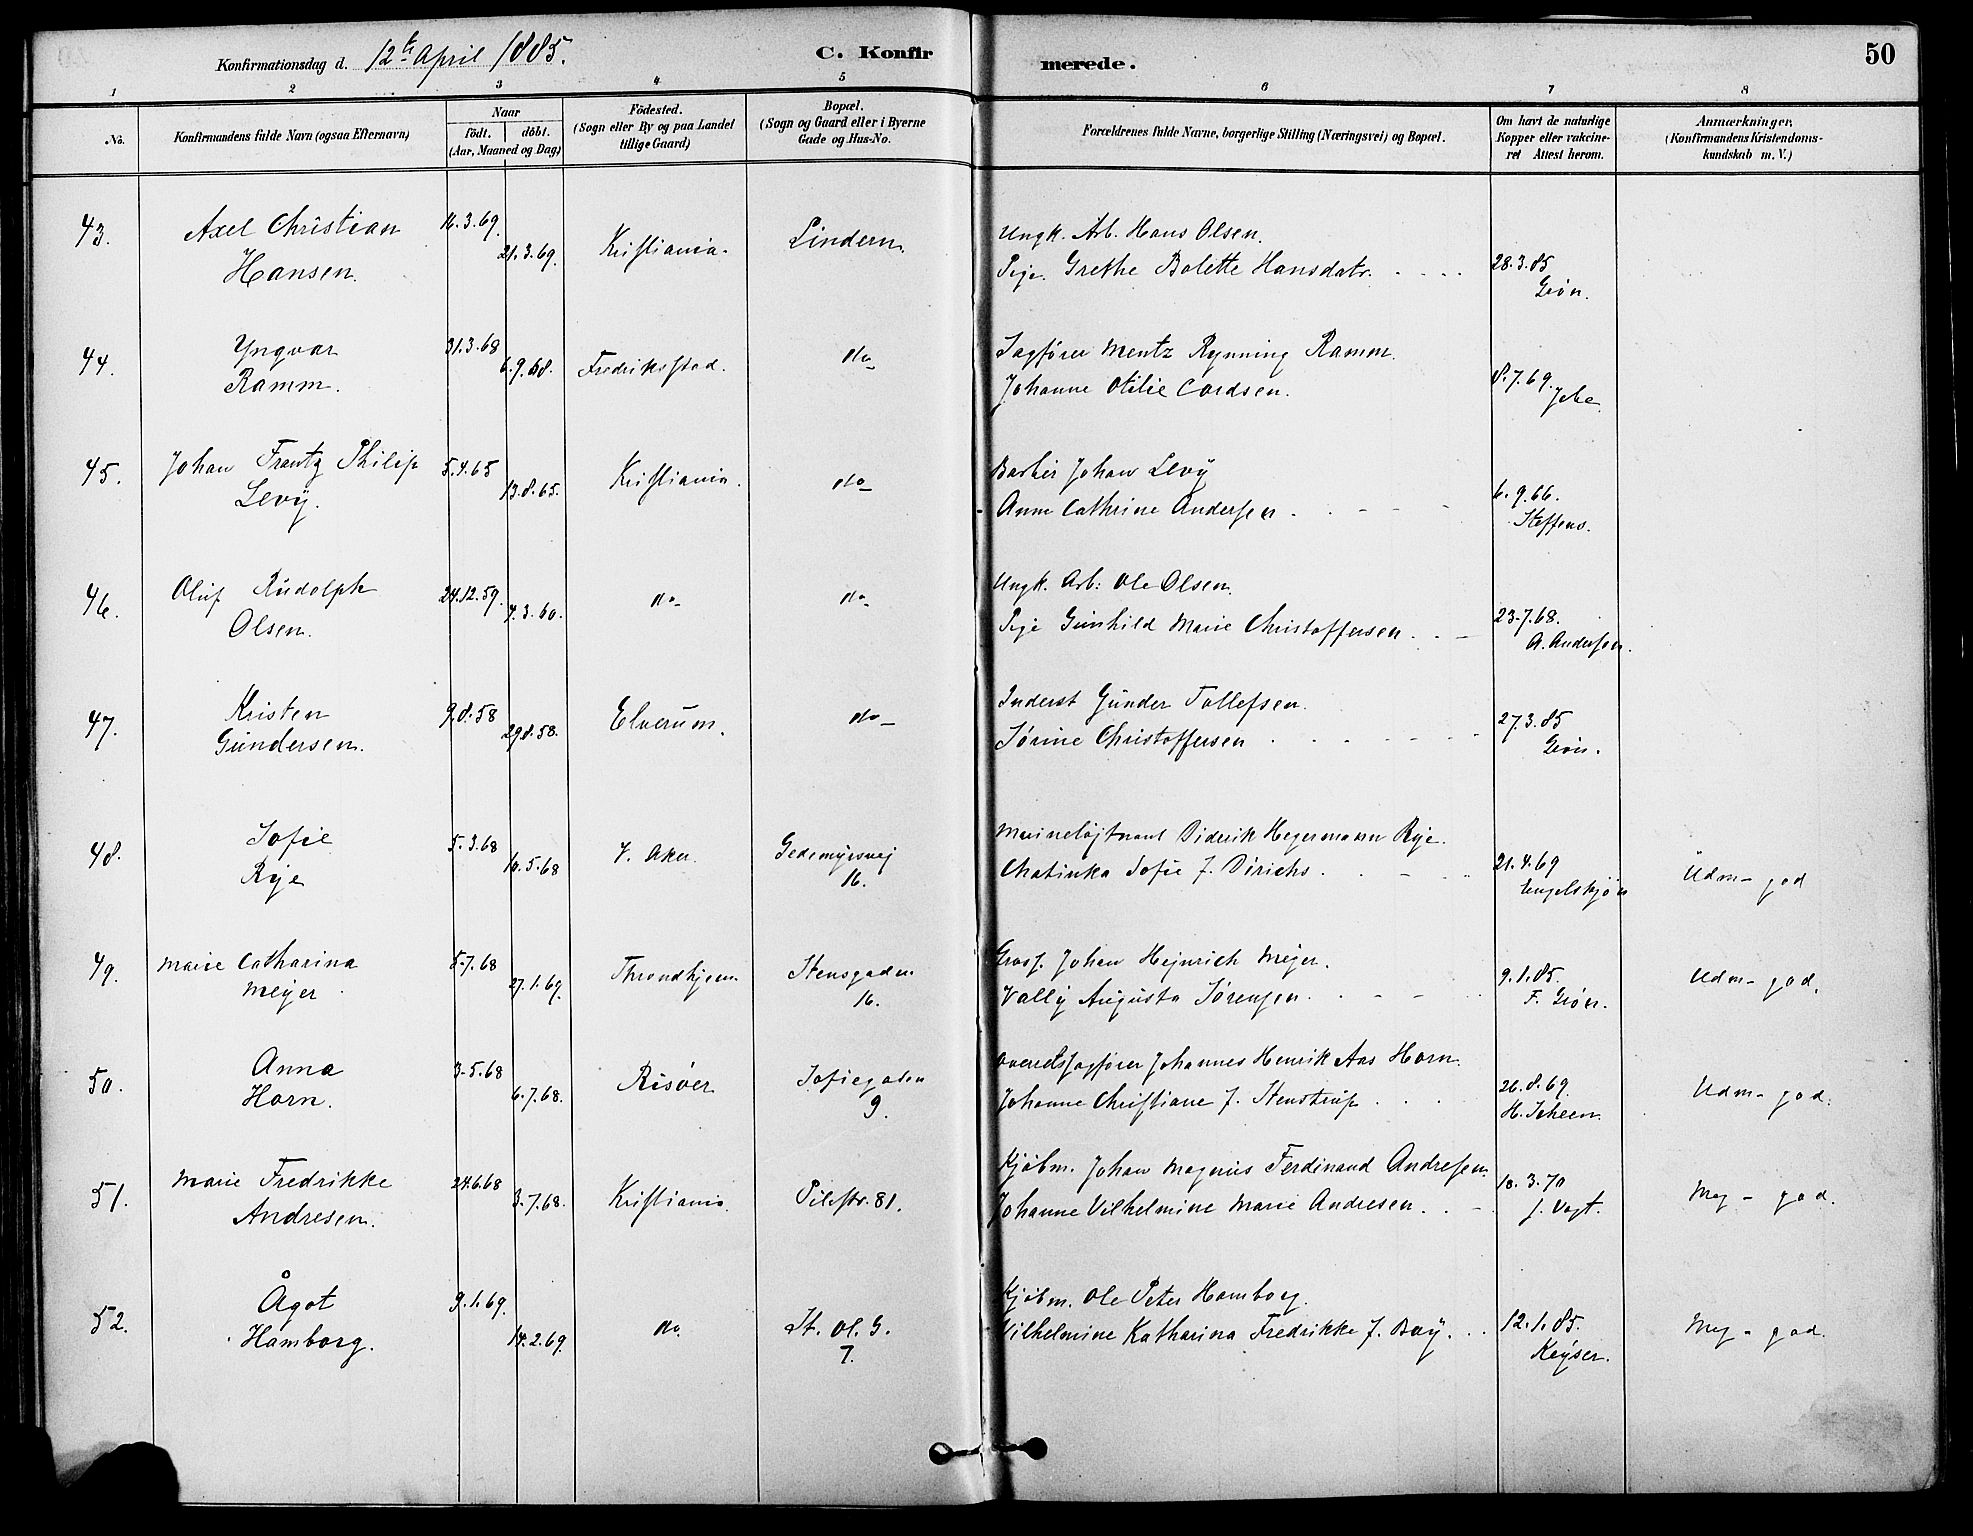 Konfirmationsdag d. 12te April 1885.
C. Konfirmerede.
50
1 2 3 4 5 6 7 8
No.
Konfirmandens fulde Navn (ogsaa Efternavn)
Naar
födt. döbt.
(Aar, Maaned og Dag)
Födested.
(Sogn eller By og paa Landet
tillige Gaard)
Bopæl.
(Sogn og Gaard eller i Byerne
Gade og Hus-No.
Forældrenes fulde Navne, borgerlige Stilling (Næringsvei) og Bopæl.
Om havt de naturlige
Kopper eller vakcine-
ret Attest herom.
Anmærkninger,
(Konfirmandens Kristendoms-
kundskab m. V.)
43. Axel Christian 16.3.69. 21.3.69. Kristiania. Lindern. Ungk. Arb. Hans Olsen.
Hansen. Pige. Grethe Bolette Hansdatr. 28.3.85
Grøn.
44. Yngvar 31.3.68 6.9.68. Fredriksstad. do Sagfører Mentz Rynning Ramm.
Ramm. Johanne Otilie Cordsen. 8.7.69.
45. Johan Frantz Philip 5.4.65 13.8.65. Kristiania. do Barber Johan Levy
Levy. Anne Cathrine Andersen 6.9.66.
Steffens.
46. Oluf Rudolph 24.12.59. 4.3.60. do do Ungk. Arb: Ole Olsen.
Olsen. Pige Gunhild Marie Christoffersen 23.7.68.
A. Andersen.
47. Kristen 9.8.58 29.8.58. Elverum. do Inderst Gunder Tollefsen.
Gundersen. Sørine Christoffersen 27.3.85
Grøn.
48. Sofie 5.3.68 10.5.68 V. Aker Gedemyrsvej Marineløjtnant Diderik Hegermann Rye.
Rye 16. Chatinka Sofie f. Dirichs. 21.4.69 Udm - god
Engelskjøn
49. Marie Catharina 5.7.68 27.1.69. Throndhjem Stensgaden Gross. Johan Hejnrich Mejer.
Mejer 16. Vally Augusta Sørensen. 9.1.85. Udm - god.
F. Grøn.
50. Anna 3.5.68 6.7.68. Risøer Sofiegaden Overetssagfører Johannes Henrik Aas Horn.
Horn. 9. Johanne Christiane f. Stenstrup 26.8.69. Udm - god.
H. Scheen
51. Marie Fredrikke 24.6.68 3.7.68. Kristiania. Pilestr. 81. Kjøbm. Johan Magnus Ferdinand Andresen.
Andresen. Johanne Vilhelmine Marie Andresen. 18.3.70 Meg - god.
J. Vogt.
52. Ågot 9.1.69. 14.2.69. do. St. Ol. G. Kjøbm. Ole Peter Hamborg.
Hamborg. 7. Vilhelmine Katharina Fredrikke f. Boy. 12.1.85. Meg - god.
Keyser.